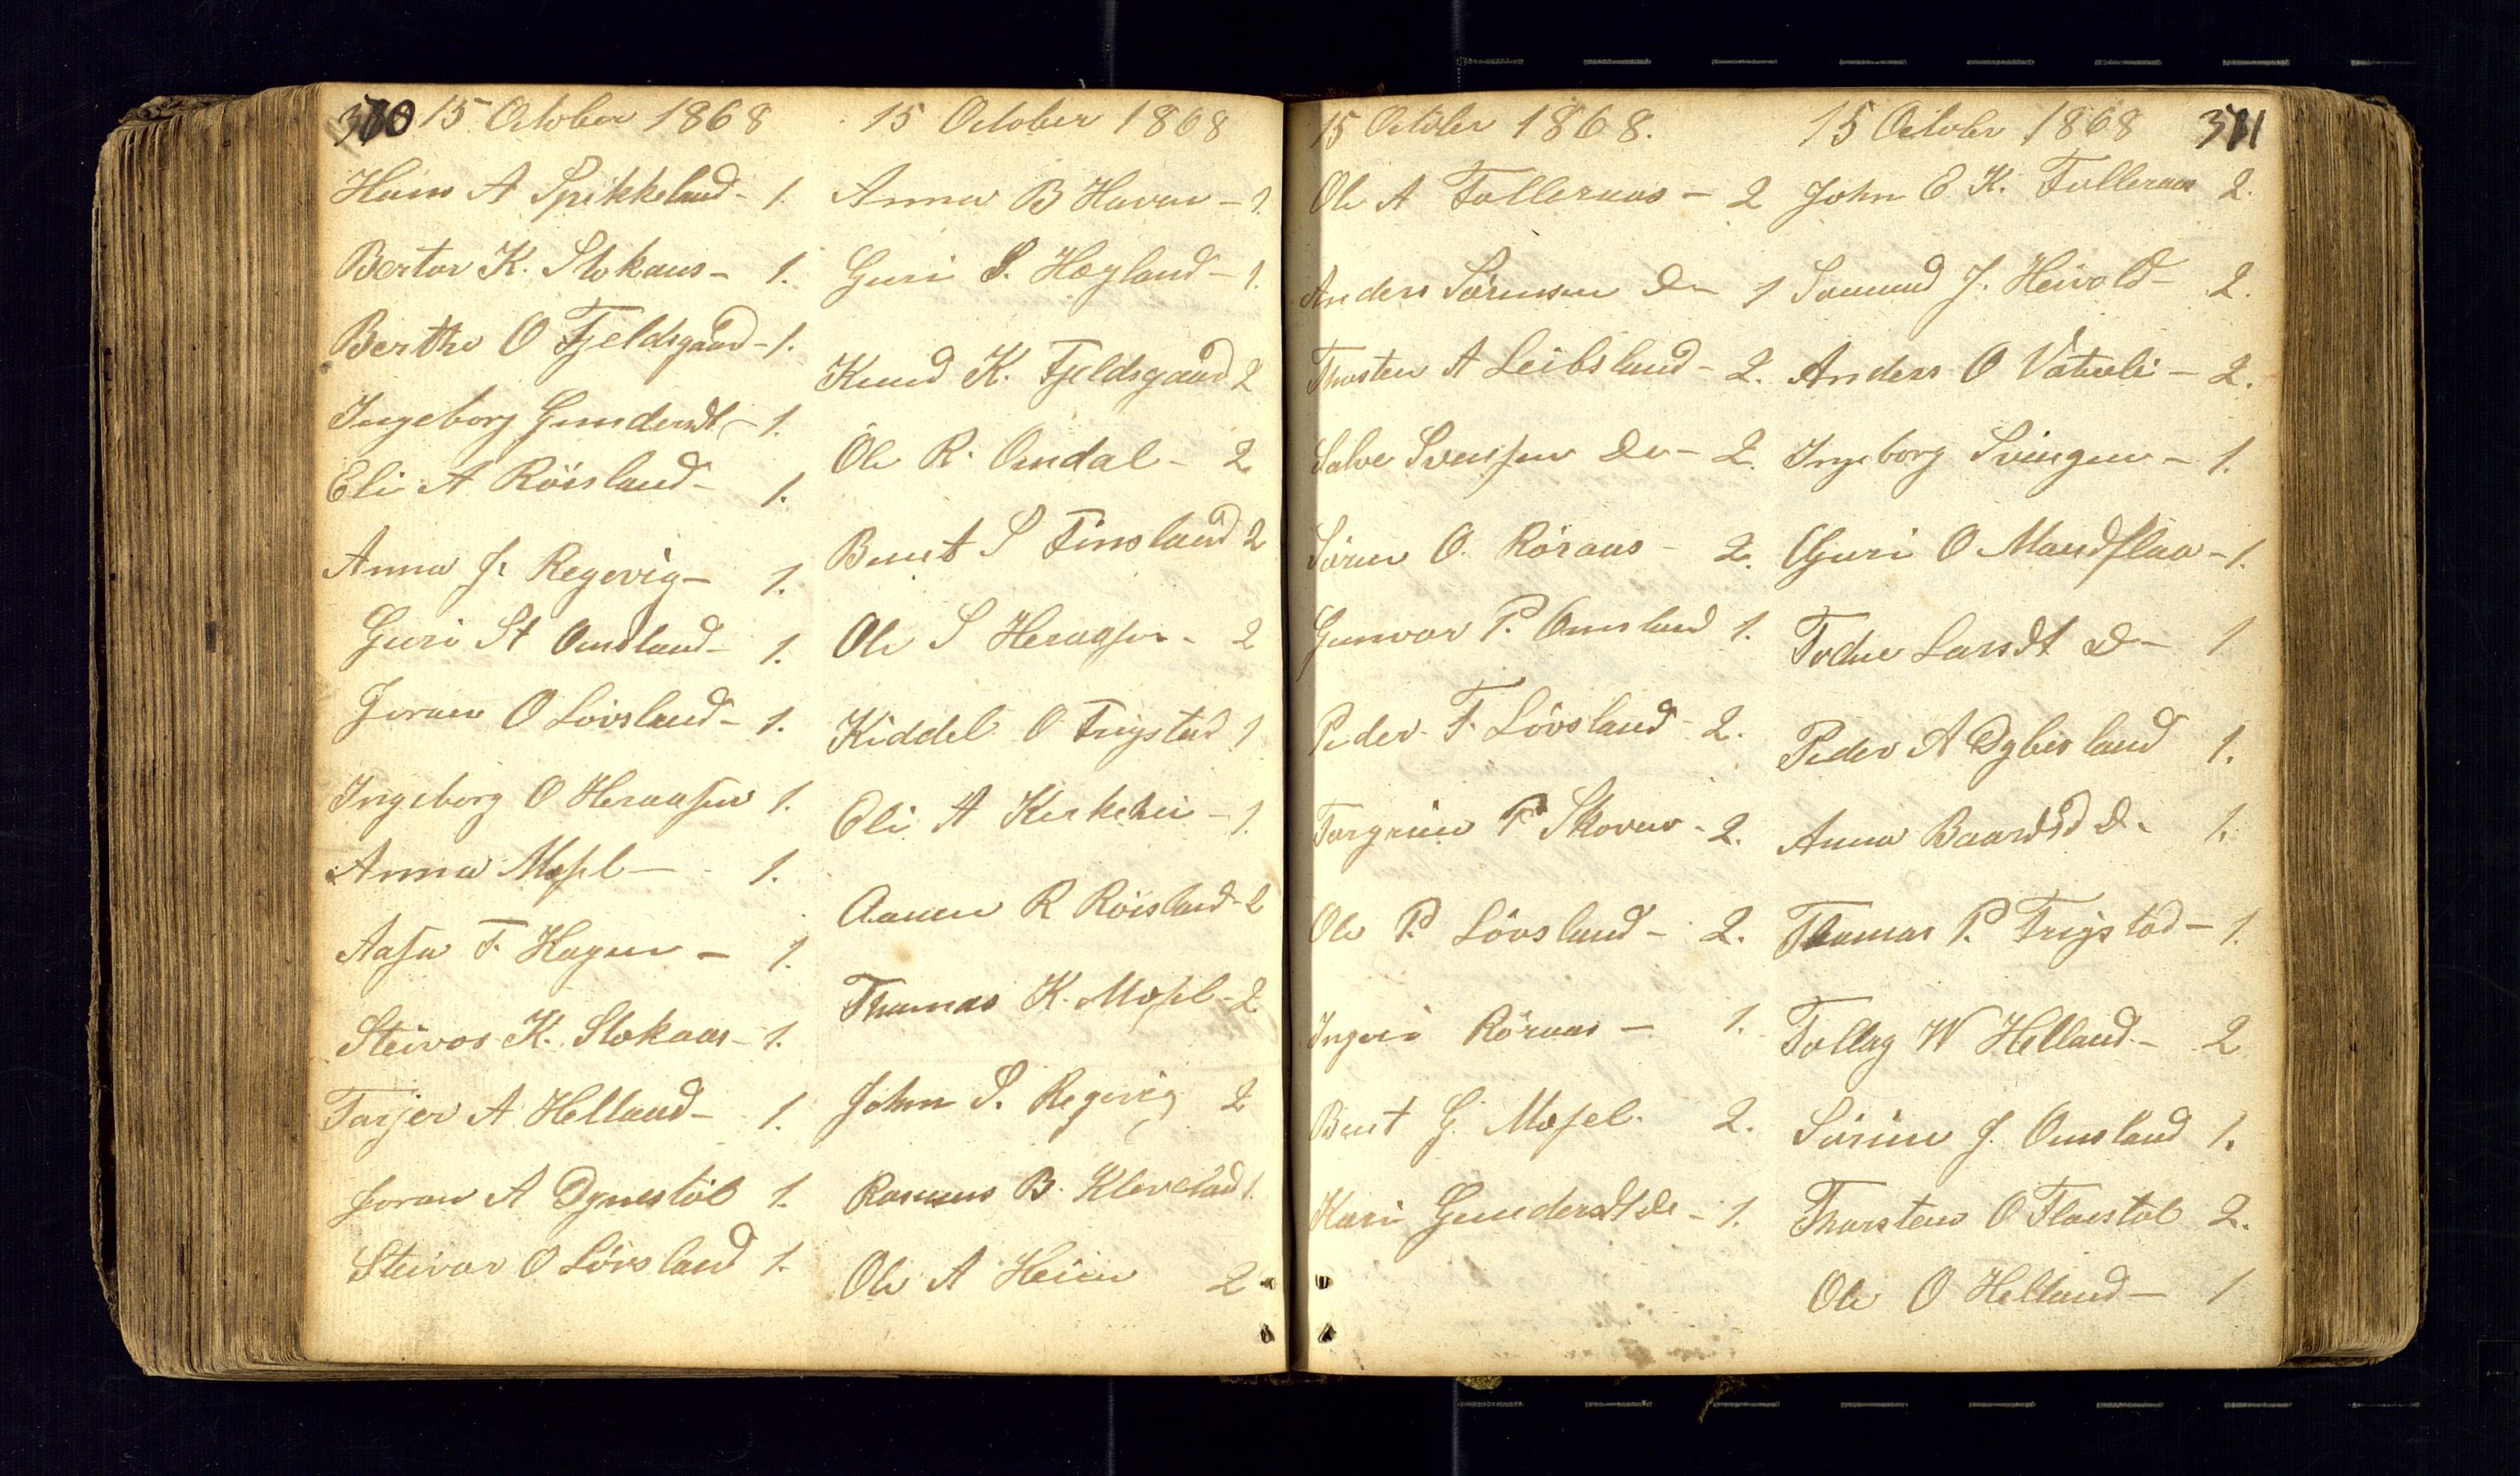 380 15 October 1868
Hans A Spikkeland - 1.
Bertar K. Stokaas - 1.
Berthe O Fjeldsgaard - 1.
Ingeborg Gundersdt - 1.
Eli A Röisland - 1.
Anna J. Regevig - 1.
Guri St Omdland - 1.
Joran O Lövsland - 1.
Ingeborg O Heraasen 1.
Anna Mosel - 1.
Aase T. Hagen - 1.
Steivor K. Stokaas - 1.
Tarjer A Helland - 1.
Joran A Dynestöl 1.
Steivor O Lövsland 1.
15 October 1868
Anna B Haven - 1.
Guri S. Hægland - 1.
Knud K. Fjeldsgaard 2
Ole R. Omdal - 2.
Bent S Finsland 2
Ole S Heraasen - 2
Kiddel O Trygstad 1
Eli A Kirkehei - 1.
Aanen R Röisland - 2
Thomas K. Mosel - 2.
John S. Regevig 2
Rasmus B. Kleveland 1.
Ole A Heien 2
15 October 1868.
Ole A Folleraas - 2
Anders Sørensen Do 1
Thosten A Leibsland - 2.
Salve Svensen Do - 2.
Søren O. Röraas - 2.
Gunvor P. Omsland 1.
Peder T. Lövsland - 2.
Torgrim T Skoven - 2.
Ole P. Lövsland - 2.
Ingeri Röraas - 1.
Bent G. Mosel. 2.
Kari Gundersdt Do - 1.
15 October 1868 381
John E K. Folleraas 2.
Somund J. Heivold - 2.
Anders O Vatneli - 2.
Ingeborg Svingen - 1.
Guri O Mandflaa - 1.
Todne Larsdt Do 1
Peder A Dybesland 1.
Anna Baardsd Do 1.
Thomas P. Trygstad - 1.
Tollag W Helland - 2
Sörine J. Omsland 1.
Thorsten O Flaestöl 2.
Ole O Helland - 1